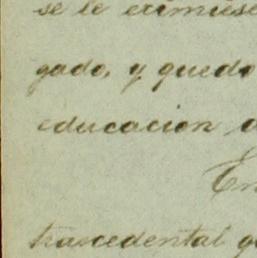 se le
gado, y quedo
educacion
En
trascedental